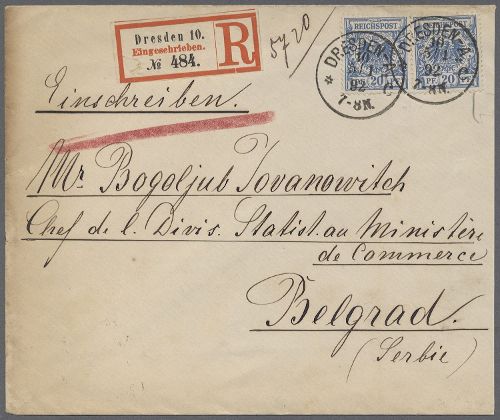 Dresden 10.
Eingeschrieben.
№ 484.
R
5720
REICHSPOST
REICHSPOST
PF 20 PF
PF 20 PF
* DRESDEN
92
7-8N.
DRESDEN
92
Einschreiben.
Mr. Bogoljub Jovanowitch
Chef de l. Divis. Statist. au Ministère
de Commerce
Belgrad.
(Serbie)